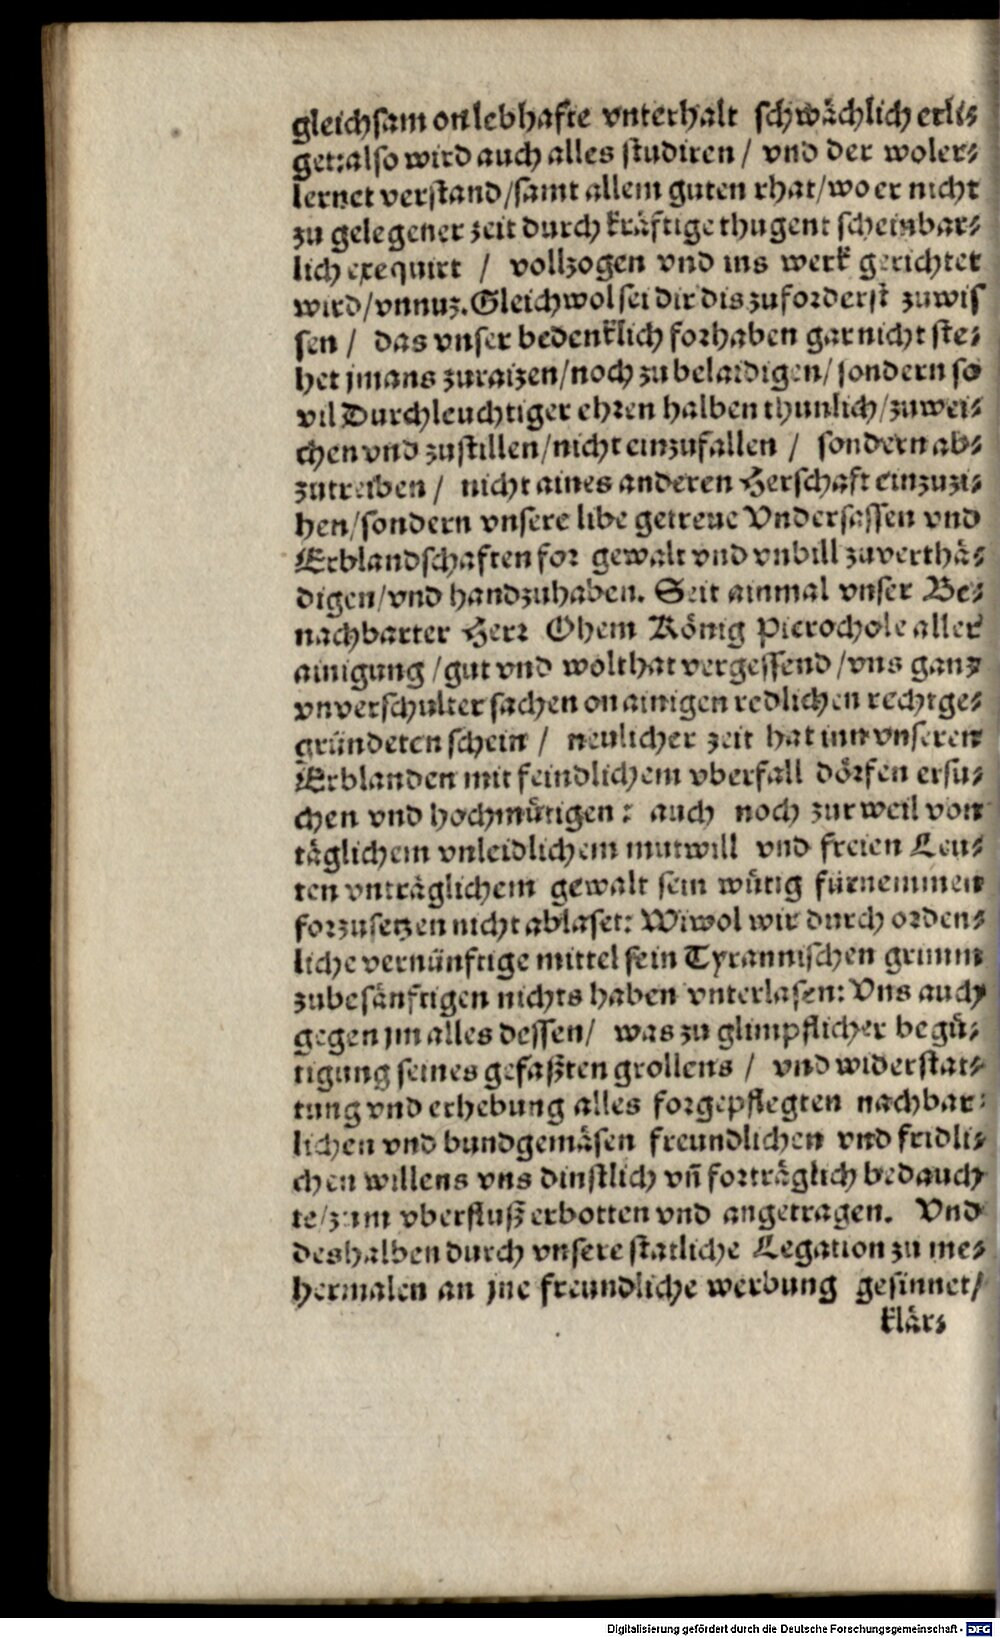 gleichsam on lebhafte vnterhalt schwächlich erli-
get: also wird auch alles studiren / vnd der woler-
lernet verstand / samt allem guten rhat / wo er nicht
zu gelegener zeit durch kräftige thugent scheinbar-
lich exequirt / vollzogen vnd ins werk gerichtet
wird / vnnuz. Gleichwol sei dir dis zuforderst zuwis
sen / das vnser bedenklich forhaben gar nicht ste-
het jmans zuraizen / noch zu belaidigen / sondern so
vil Durchleuchtiger ehren halben thunlich / zuwei-
chen vnd zustillen / nicht einzufallen / sondern ab-
zutreiben / nicht aines anderen Herschaft einzuzi-
hen / sondern vnsere libe getreue Vndersassen vnd
Erblandschaften for gewalt vnd vnbill zuverthä-
digen / vnd handzuhaben. Seit ainmal vnser Be-
nachbarter Herr Ohem König Pierochole aller
ainigung / gut vnd wolthat vergessend / vns ganz
vnverschulter sachen on ainigen redlichen rechtge-
gründeten schein / neulicher zeit hat inn vnseren
Erblanden mit feindlichem vberfall dörfen ersu-
chen vnd hochmütigen: auch noch zur weil von
täglichem vnleidlichem mutwill vnd freien Leu-
ten vnträglichem gewalt sein wütig fürnemmen
forzusetzen nicht ablaset: Wiwol wir durch orden-
liche vernünftige mittel sein Tyrannischen grimm
zubesänftigen nichts haben vnterlasen: Vns auch
gegen jm alles dessen / was zu glimpflicher begü-
tigung seines gefaßten grollens / vnd widerstat-
tung vnd erhebung alles forgepflegten nachbar-
lichen vnd bundgemäsen freundlichen vnd fridli-
chen willens vns dinstlich vn̄ forträglich bedauch
te / zum vberfluß erbotten vnd angetragen. Vnd
deshalben durch vnsere statliche Legation zu me-
hermalen an jne freundliche werbung gesinnet /
klär-
Digitalisierung gefördert durch die Deutsche Forschungsgemeinschaft - DFG